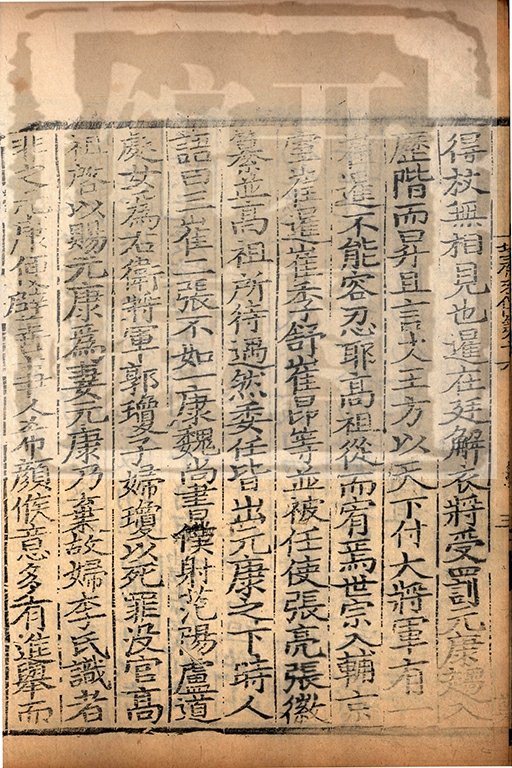 得放無相見也暹在廷解衣將受罰元康趨入
歷階而昇且言大王方以天下付大將軍有一
崔暹不能容忍耶高祖從而宥焉世宗入輔京
室崔暹崔季舒崔昂等並被任使張亮張徽
纂並高祖所待遇然委任皆出元康之下時人
語曰三崔二張不如一康魏尚書僕射范陽盧道
虔女爲右衛將軍郭瓊子婦瓊以死罪没官高
祖啓以賜元康爲妻元康乃棄故婦李氏識者
非之元康便辟善事人希顔候意多有進舉而